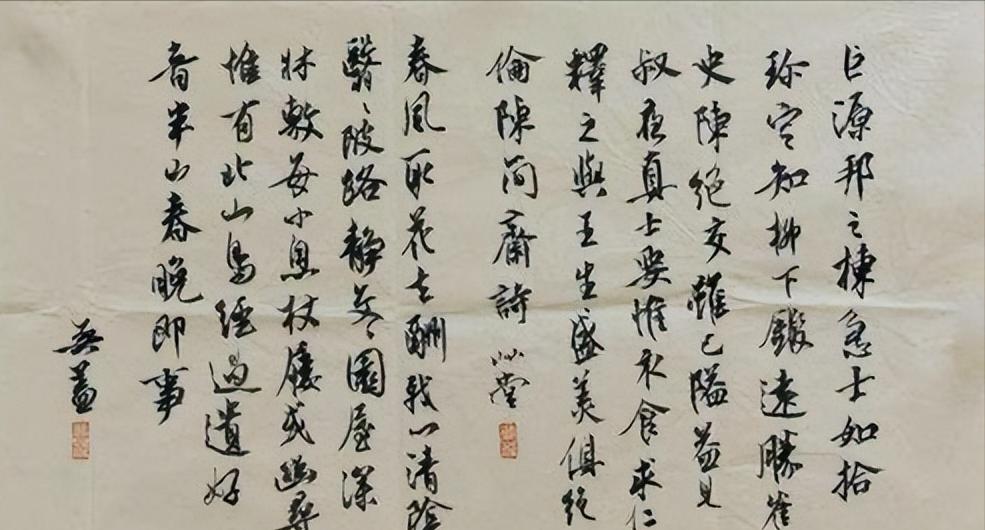 巨源邦之棟急士如拾
珍定知柳下鍛遠勝崔
史陳絕交雖已隘益見
叔夜真士要惟衣食求仁
釋之與王生盛美俱絕
倫陳簡齋詩
春風取花去酬我以清陰
翳〻陂路靜交〻園屋深
牀敷每小息杖屨或幽尋
惟有北山鳥經過遺好
音半山春晚即事